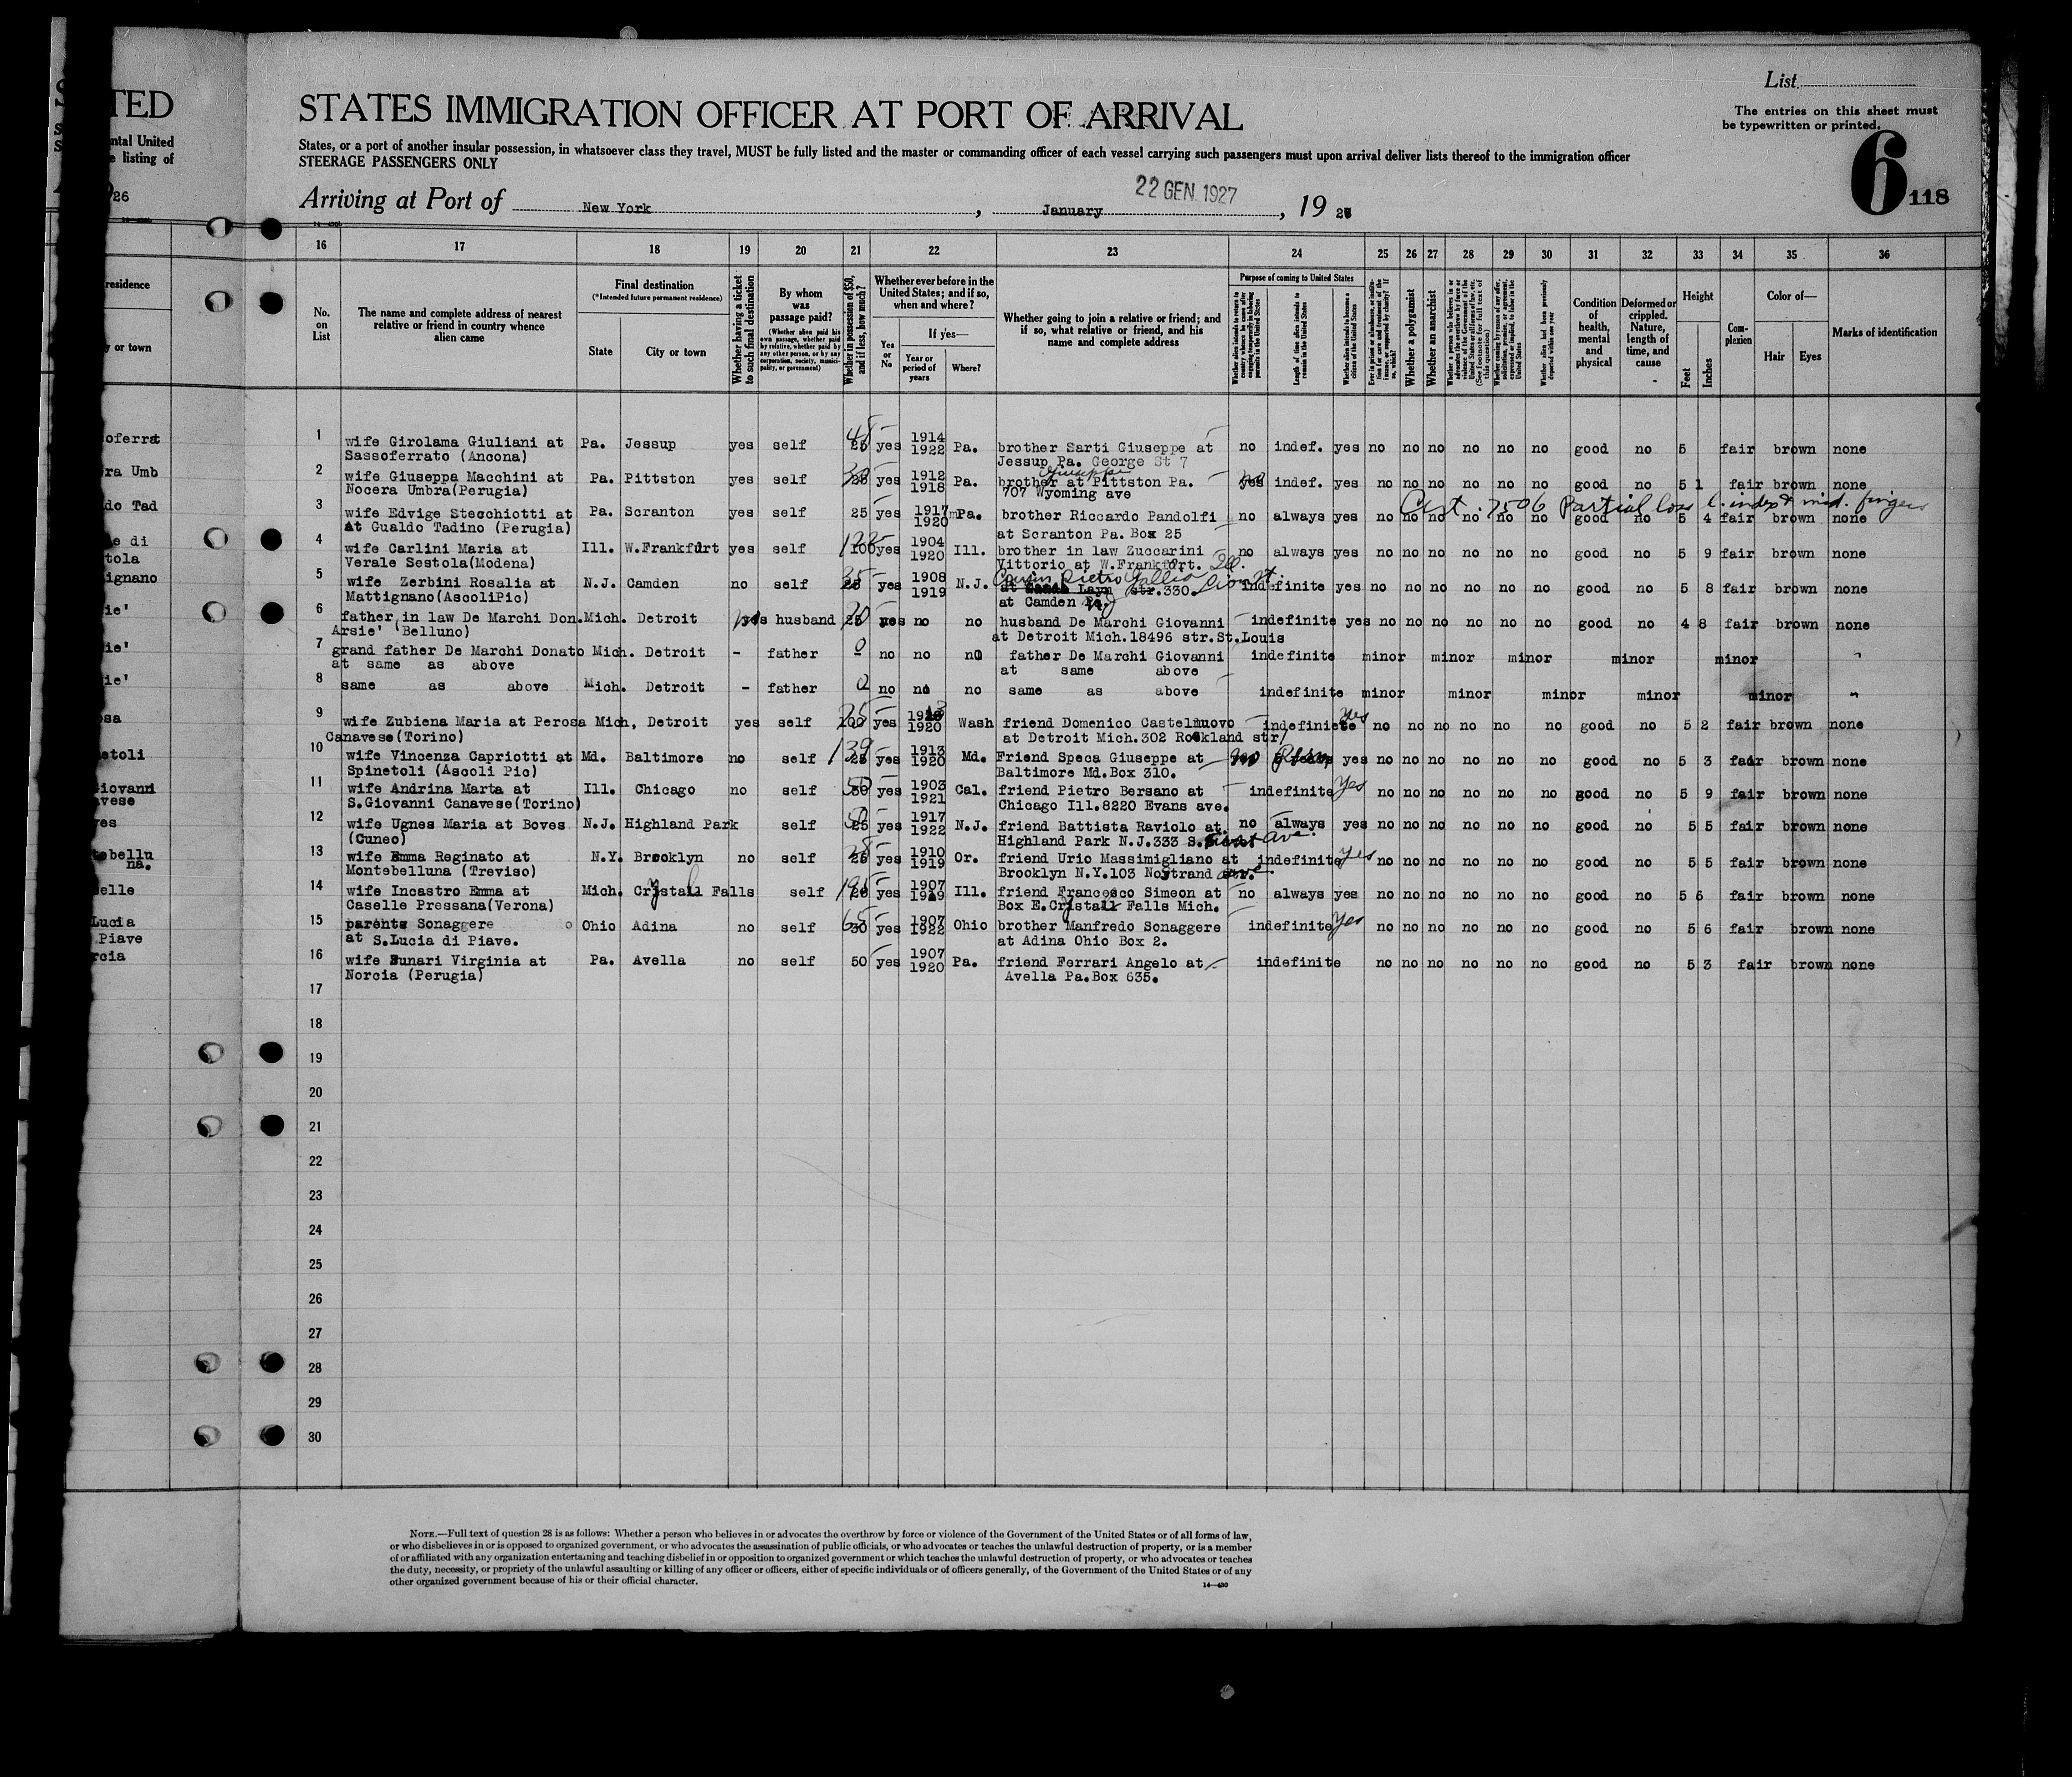 TED
ntal United
e listing of
26
residence
y or town
List
The entries on this sheet must
be typewritten or printed.
6 118
STATES IMMIGRATION OFFICER AT PORT OF ARRIVAL
States, or a port of another insular possession, in whatsoever class they travel, MUST be fully listed and the master or commanding officer of each vessel carrying such passengers must upon arrival deliver lists thereof to the immigration officer
STEERAGE PASSENGERS ONLY
Arriving at Port of New York, January 22 GEN. 1927, 19
16 17 18 19 20 21 22 23 24 25 26 27 28 29 30 31 32 33 34 35 36
No. on List
The name and complete address of nearest relative or friend in country whence alien came
Final destination
(*Intended future permanent residence)
State
City or town
Whether having a ticket to such final destination
By whom was passage paid?
(Whether alien paid his own passage, whether paid by relative, whether paid by any other person, or by any corporation, society, municipality, or government)
Whether in possession of $50, and if less, how much?
Whether ever before in the United States; and if so, when and where?
Yes or No
If yes—
Year or period of years
Where?
Whether going to join a relative or friend; and if so, what relative or friend, and his name and complete address
Purpose of coming to United States
Length of time alien intends to remain in the United States
Whether alien intends to become a citizen of the United States
Whether a polygamist
Whether an anarchist
Condition of health, mental and physical
Deformed or crippled. Nature, length of time, and cause
Height
Feet
Inches
Complexion
Color of—
Hair
Eyes
Marks of identification
1 wife Girolama Giuliani at Pa. Jessup yes self 48 yes 1914 Pa. brother Sarti Giuseppe at no indef. yes no no no no no no good no 5 fair brown none
Sassoferrato (Ancona) 1922 Jessup Pa. George St 7
2 wife Giuseppa Macchini at Pa. Pittston yes self yes 1912 Pa. brother Giuseppe at Pittston Pa. no indef. yes no no no no no no good no 5 1 fair brown none
Nocera Umbra(Perugia) 1918 707 Wyoming ave
Cert. 7506 Partial loss l. index & mid. fingers
3 wife Edvige Stecchiotti at Pa. Scranton yes self 25 yes 1917 Pa. brother Riccardo Pandolfi no always yes no no no no no no good no 5 4 fair brown none
At Gualdo Tadino (Perugia) 1920 at Scranton Pa. Box 25
4 wife Carlini Maria at Ill. W.Frankfurt yes self yes 1904 Ill. brother in law Zuccarini no always yes no no no no no no good no 5 9 fair brown none
Verale Sestola(Modena) 1920 Vittorio at W.Frankfort. Ill.
5 wife Zerbini Rosalia at N.J. Camden no self yes 1908 N.J. Cousin Pietro indefinite yes no no no no no no good no 5 8 fair brown none
Mattignano(AscoliPic) 1919 str.330.
at Camden
6 father in law De Marchi Don. Mich. Detroit yes husband 20 no no husband De Marchi Giovanni indefinite yes no no no no no no good no 4 8 fair brown none
Arsie' (Belluno) at Detroit Mich.18496 str.St.Louis
7 grand father De Marchi Donato Mich. Detroit - father 0 no no no father De Marchi Giovanni indefinite minor minor minor minor minor
at same as above at same above
8 same as above Mich. Detroit - father 0 no no no same as above indefinite minor minor minor minor minor
9 wife Zubiena Maria at Perosa Mich, Detroit yes self yes 1920 Wash friend Domenico Castelnuovo indefinite yes no no no no no no good no 5 2 fair brown none
Canavese(Torino) at Detroit Mich.302 Rockland str/
10 wife Vincenza Capriotti at Md. Baltimore no self 139 yes 1913 Md. Friend Speca Giuseppe at no yes no no no no no no good no 5 3 fair brown none
Spinetoli (Ascoli Pic) 1920 Baltimore Md.Box 310.
11 wife Andrina Marta at Ill. Chicago no self yes 1903 Cal. friend Pietro Bersano at indefinite yes no no no no no no good no 5 9 fair brown none
S.Giovanni Canavese(Torino) 1921 Chicago Ill.8220 Evans ave.
12 wife Ugnes Maria at Boves N.J. Highland Park self yes 1917 N.J. friend Battista Raviolo at. no always yes no no no no no no good no 5 5 fair brown none
(Cuneo) 1922 Highland Park N.J.333 S. ave.
13 wife Emma Reginato at N.Y. Brooklyn no self yes 1910 Or. friend Urio Massimigliano at indefinite yes no no no no no no good no 5 5 fair brown none
Montebelluna (Treviso) 1919 Brooklyn N.Y.103 Nostrand ave.
14 wife Incastro Emma at Mich. Crystall Falls self yes 1907 Ill. friend Francesco Simeon at no always yes no no no no no no good no 5 6 fair brown none
Caselle Pressana(Verona) 1919 Box E.Crystall Falls Mich.
15 parents Sonaggere Ohio Adina no self 65 yes 1907 Ohio brother Manfredo Sonaggere indefinite yes no no no no no no good no 5 6 fair brown none
at S.Lucia di Piave. 1922 at Adina Ohio Box 2.
16 wife Sunari Virginia at Pa. Avella no self 50 yes 1907 Pa. friend Ferrari Angelo at indefinite no no no no no no good no 5 3 fair brown none
Norcia (Perugia) 1920 Avella Pa.Box 635.
17
18
19
20
21
22
23
24
25
26
27
28
29
30
NOTE.—Full text of question 28 is as follows: Whether a person who believes in or advocates the overthrow by force or violence of the Government of the United States or of all forms of law,
or who disbelieves in or is opposed to organized government, or who advocates the assassination of public officials, or who advocates or teaches the unlawful destruction of property, or is a member
of or affiliated with any organization entertaining and teaching disbelief in or opposition to organized government or which teaches the unlawful destruction of property, or who advocates or teaches
the duty, necessity, or propriety of the unlawful assaulting or killing of any officer or officers, either of specific individuals or of officers generally, of the Government of the United States or of any
other organized government because of his or their official character.
14—430